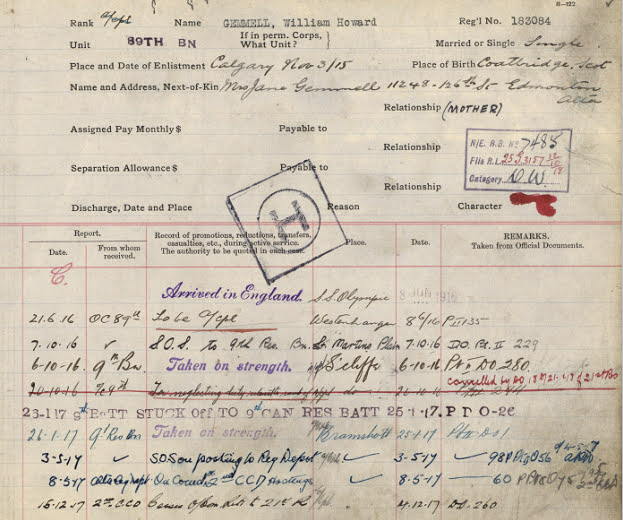 R-122
Rank A/Cpl Name GEMMELL, William Howard Reg'l No. 183084
Unit 89TH BN If in perm. Corps, What Unit? Married or Single Single
Place and Date of Enlistment Calgary Nov 3/15 Place of Birth Coatbridge, Scot
Name and Address, Next-of-Kin Mrs Jane Gemmell 11248-126th St Edmonton
Alta
Relationship (MOTHER)
Assigned Pay Monthly $ Payable to
Relationship
N/E. R.B. No 7485
File R.L.
Category D.W.
Separation Allowance $ Payable to
Relationship
H
Discharge, Date and Place Reason Character
Report. Record of promotions, reductions, transfers, casualties, etc., during active service. The authority to be quoted in each case. Place. Date. REMARKS. Taken from Official Documents.
Date. From whom received.
C.
Arrived in England. S.S. Olympic
21.6.16 OC 89th To be A/Cpl Westenhanger 8/6/16 Pt II 135
7.10.16 S.O.S. to 9th Res. Bn. St Martins Plain 7.10.16 D.O. Pt. II 229
6-10-16 9th Bn. Taken on strength. S'cliffe 6-10-16 Pt II DO. 280.
20-10-16
23-1-17 9th BATT STUCK OFF TO 9th CAN RES BATT 25-1-17. P D O-26
26-1-17 9th Res Bn Taken on strength. Bramshott 25-1-17 Pt II DO 1
3-5-17 SOS on posting to Reg Depot 3-5-17
8-5-17 On Comd 2nd CCD Hastings 8-5-17 60
15-12-17 2nd CCD 4-12-17 D.O. 260